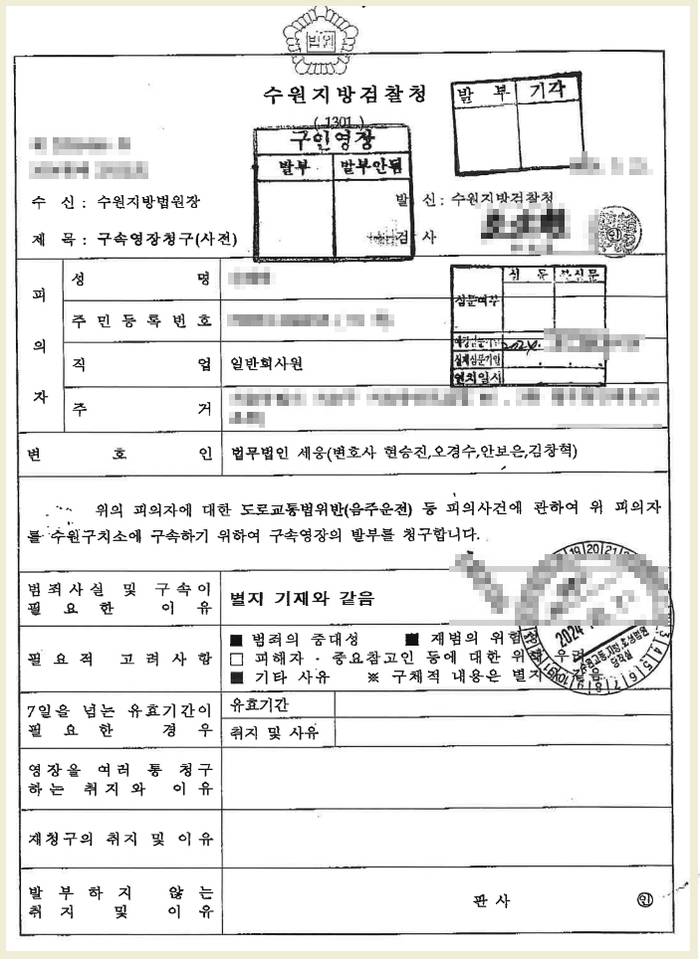 법원
수원지방검찰청
( 1301 )
구인영장
발부 발부안됨
발 부 기각
수 신 : 수원지방법원장
발 신 : 수원지방검찰청
제 목 : 구속영장청구(사전)
검 사
인
피의자
성 명
주 민 등 록 번 호
직 업 일반회사원
주 거
심 문
심문여부
2024.
실제심문기일
연치일시
변 호 인 법무법인 세웅(변호사 현승진,오경수,안보은,김창혁)
위의 피의자에 대한 도로교통법위반(음주운전) 등 피의사건에 관하여 위 피의자
를 수원구치소에 구속하기 위하여 구속영장의 발부를 청구합니다.
범죄사실 및 구속이
필 요 한 이 유
별지 기재와 같음
필 요 적 고 려 사 항
■ 범죄의 중대성 ■ 재범의 위험
□ 피해자 · 중요참고인 등에 대한 위해 우려
■ 기타 사유 ※ 구체적 내용은 별지 같음
19 20 21
2024
당직실
3 4 5 6 7 8 9
7일을 넘는 유효기간이
필 요 한 경 우
유효기간
취지 및 사유
영장을 여러 통 청구
하는 취지와 이유
재청구의 취지 및 이유
발 부 하 지 않 는
취 지 및 이 유
판 사 인